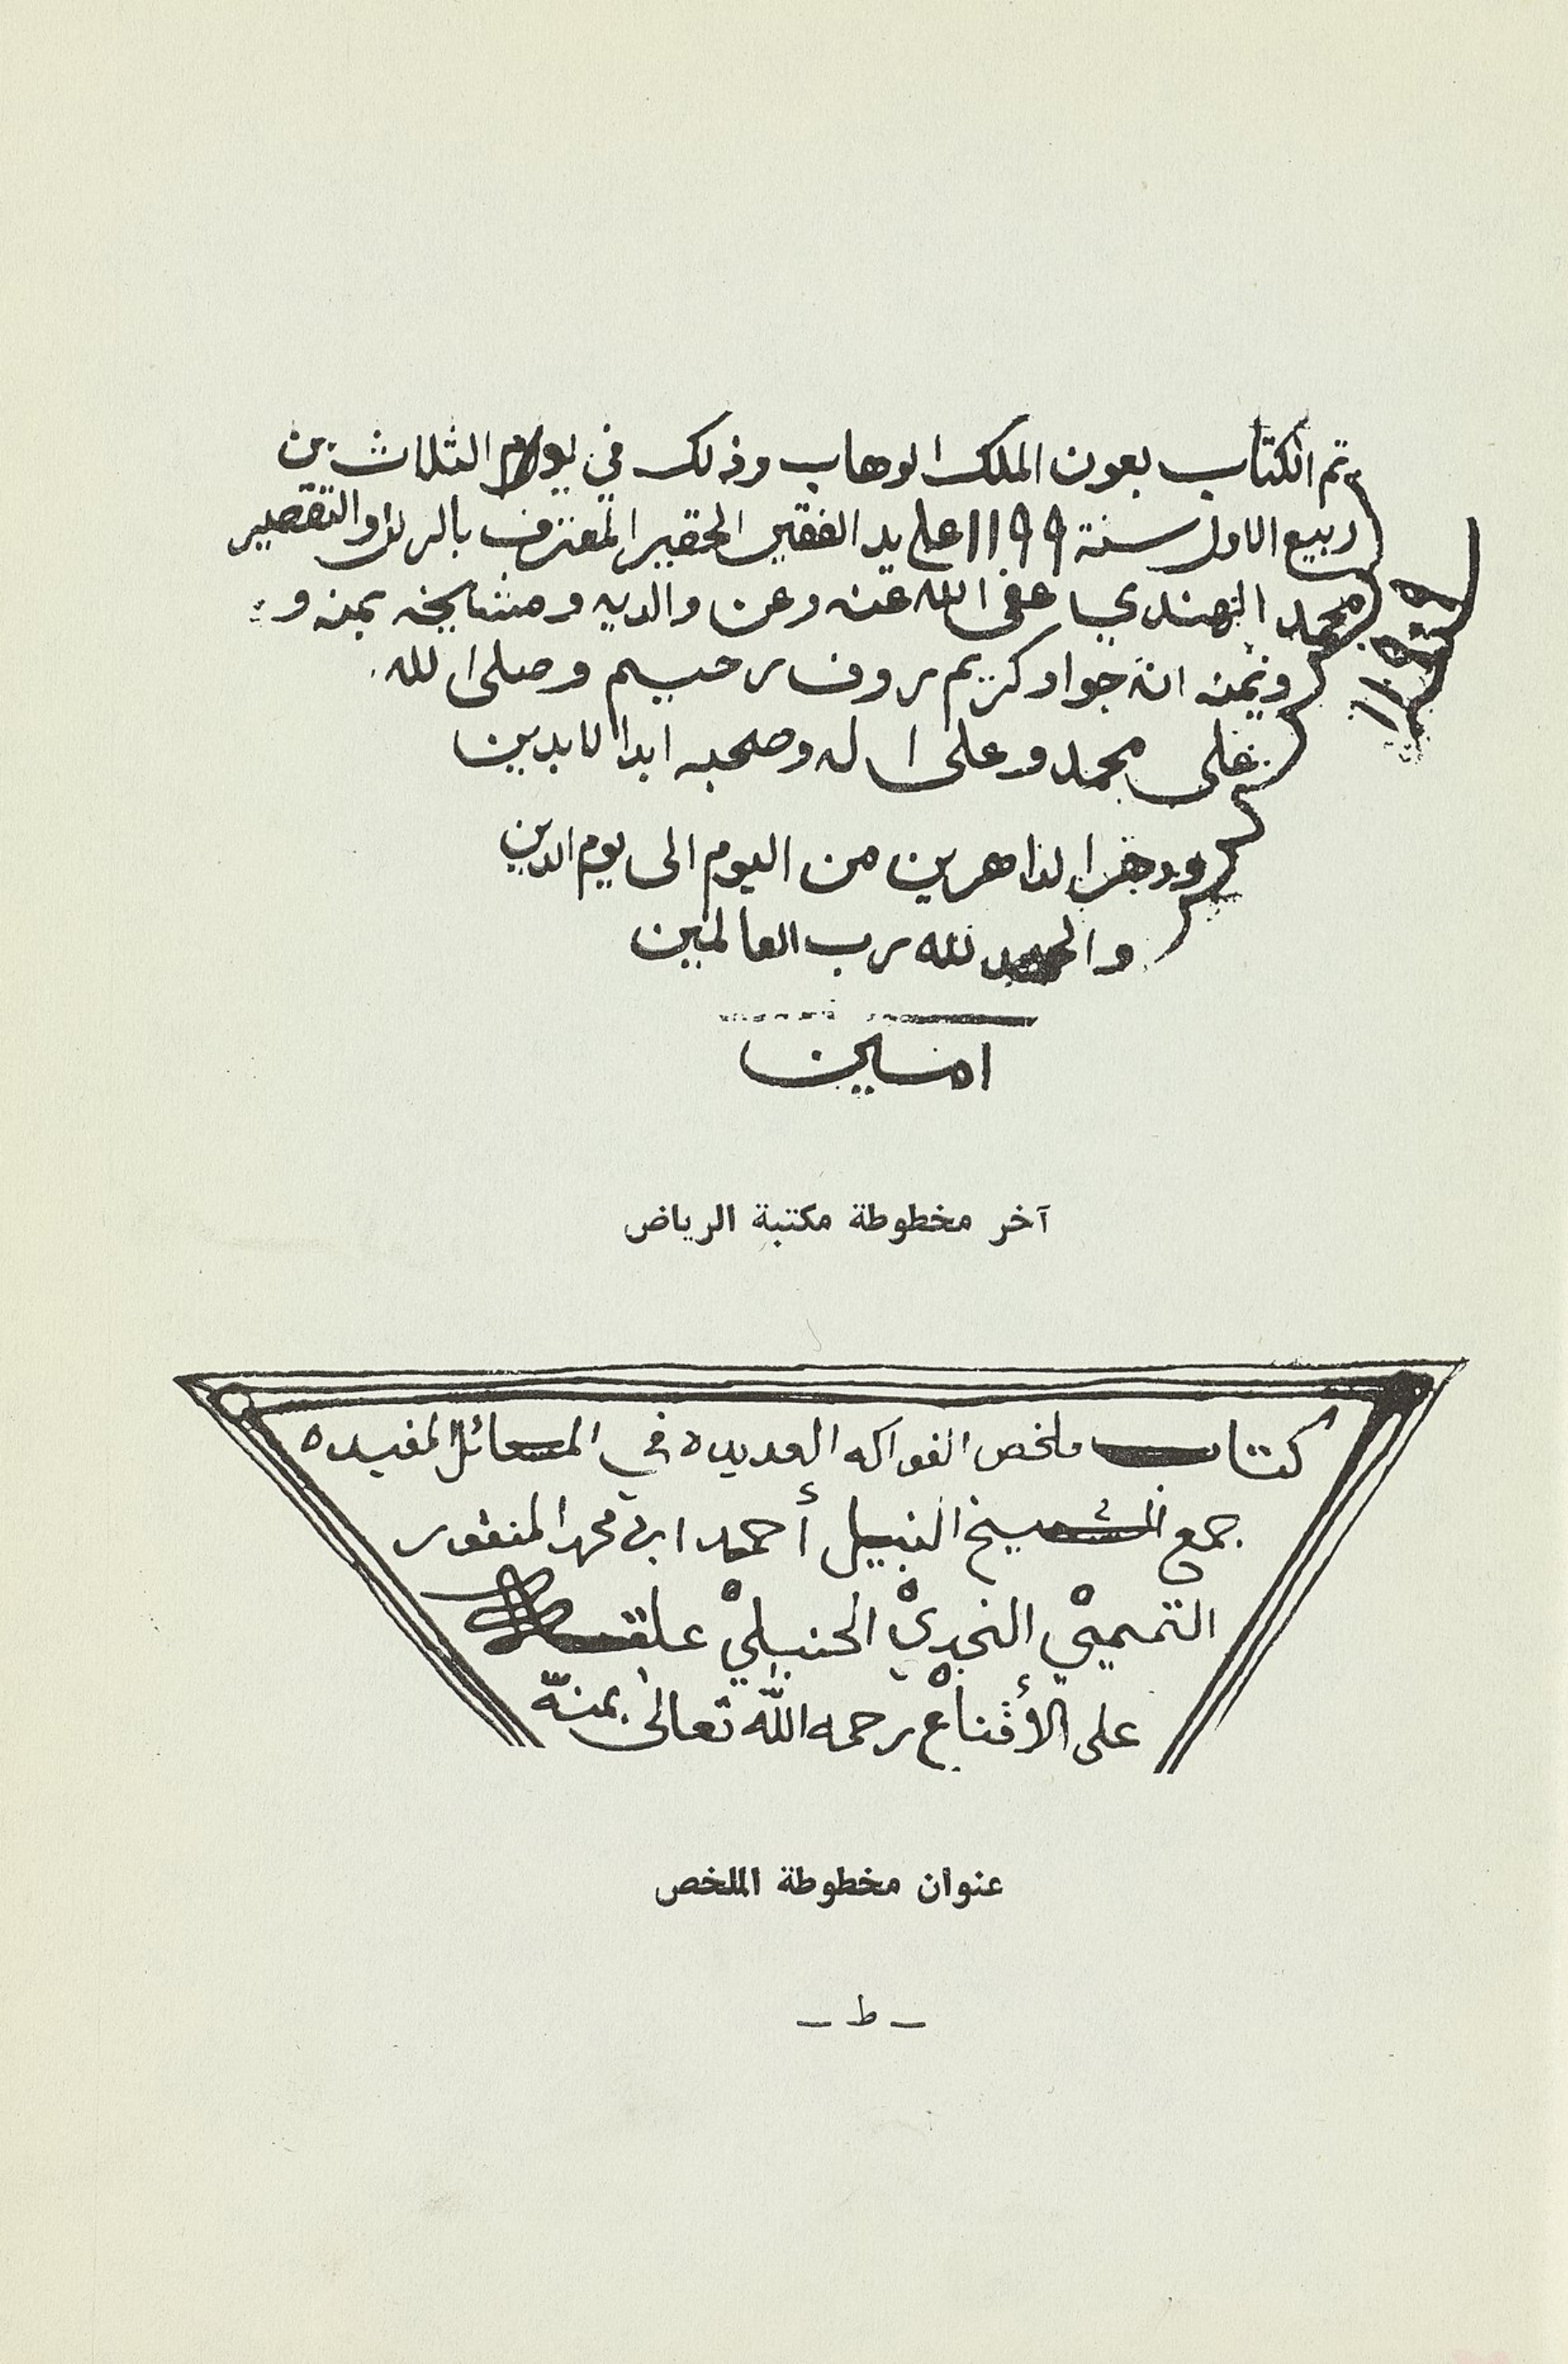 تم الكتاب بعون الملك الوهاب وذلك في يوم الثلاث من
ربيع الاول سنة ١١٩٩ على يد الفقير الحقير المعترف بالزلل والتقصير
محمد الهندي عفى الله عنه وعن والديه ومشايخه بمنه و
ويمنه انه جواد كريم روف رحيم وصلى الله
على محمد وعلى اله وصحبه ابدا الابدين
ودهر الداهرين من اليوم الى يوم الدين
والحمد لله رب العالمين
امين
١١٩٩
آخر مخطوطة مكتبة الرياض
كتاب ملخص الفواكه العديده في المسائل المفيده
جمع الشيخ النبيل أحمد ابن محمد المنقور
التميميْ النجديْ الحنبليْ علقه
على الأقناعْ رحمه الله تعالى بمنّه
عنوان مخطوطة الملخص
— ط —